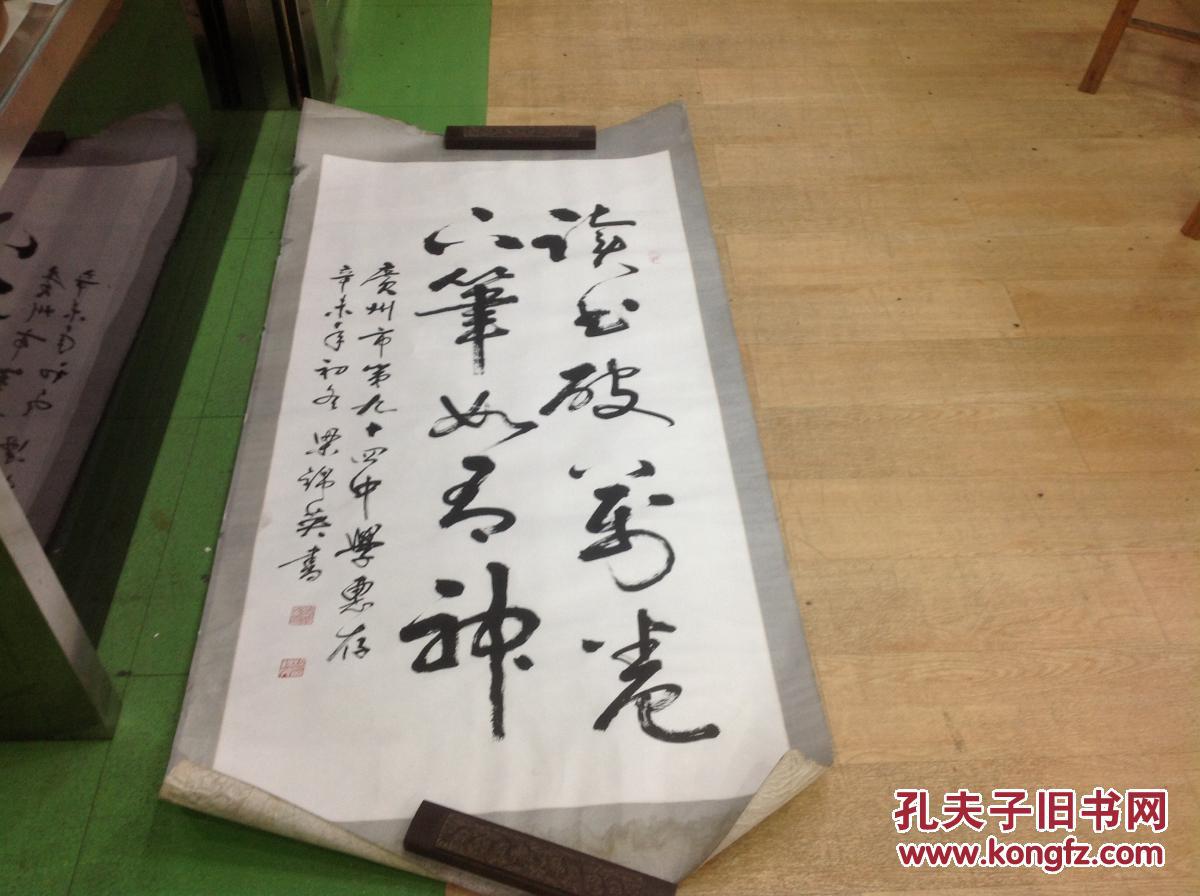 讀书破萬卷
下筆如有神
廣州市第九十四中學惠存
辛未年初冬 梁錦英書
孔夫子旧书网
www.kongfz.com